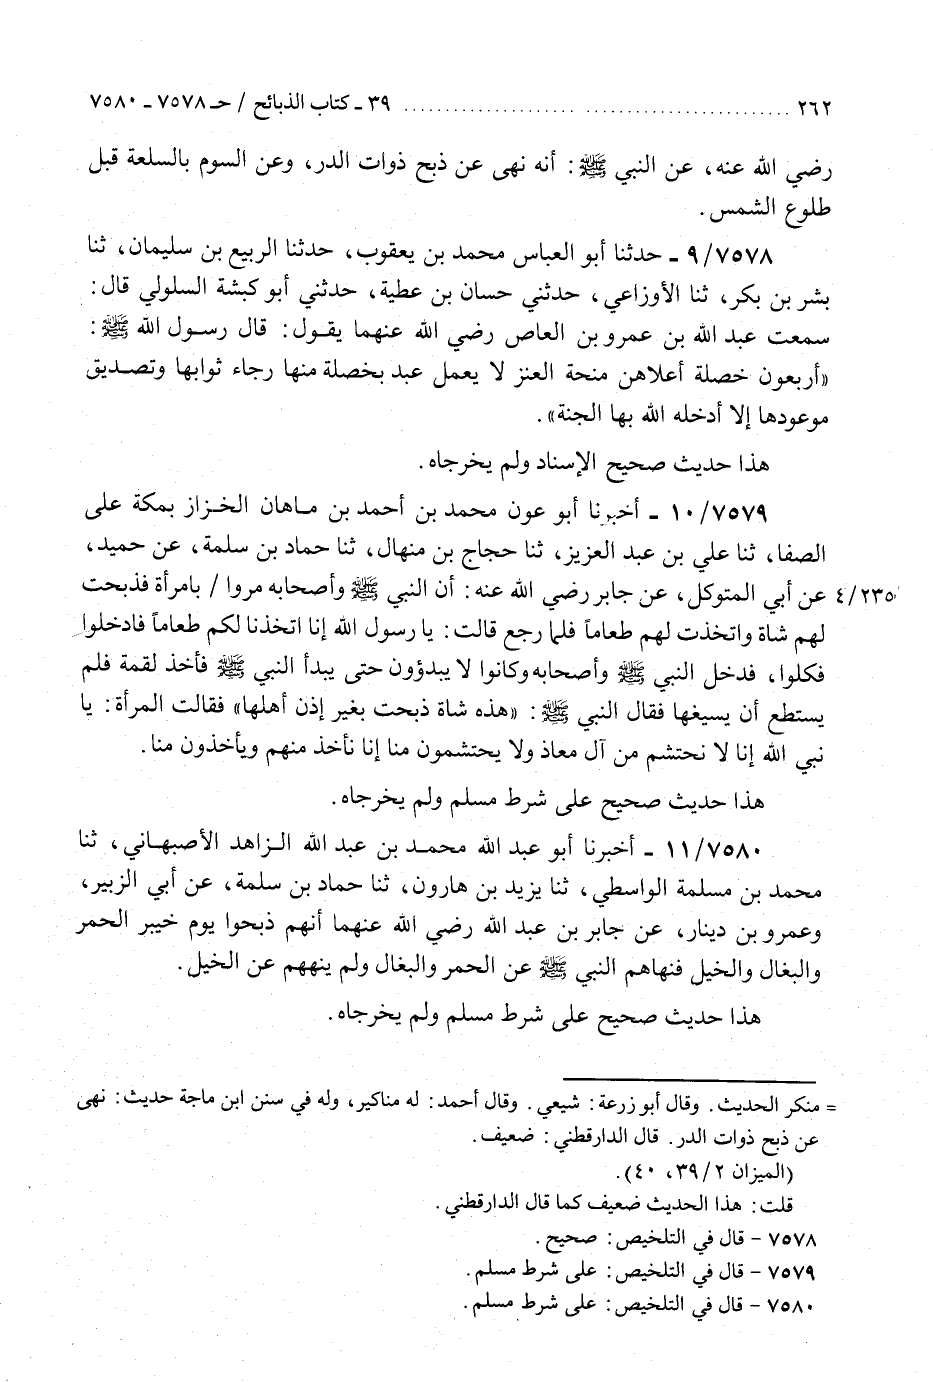 ٢٦٢ ........................................ ٣٩ ـ كتاب الذبائح / حـ ٧٥٧٨ ـ ٧٥٨٠
رضي الله عنه، عن النبي ﷺ: أنه نهى عن ذبح ذوات الدر، وعن السوم بالسلعة قبل
طلوع الشمس.
٩/٧٥٧٨ ـ حدثنا أبو العباس محمد بن يعقوب، حدثنا الربيع بن سليمان، ثنا
بشر بن بكر، ثنا الأوزاعي، حدثني حسان بن عطية، حدثني أبو كبشة السلولي قال:
سمعت عبد الله بن عمرو بن العاص رضي الله عنهما يقول: قال رسول الله ﷺ:
«أربعون خصلة أعلاهن منحة العنز لا يعمل عبد بخصلة منها رجاء ثوابها وتصديق
موعودها إلا أدخله الله بها الجنة».
هذا حديث صحيح الإسناد ولم يخرجاه.
١٠/٧٥٧٩ ـ أخبرنا أبو عون محمد بن أحمد بن ماهان الخزاز بمكة على
الصفا، ثنا علي بن عبد العزيز، ثنا حجاج بن منهال، ثنا حماد بن سلمة، عن حميد،
٤/٢٣٥ عن أبي المتوكل، عن جابر رضي الله عنه: أن النبي ﷺ وأصحابه مروا / بامرأة فذبحت
لهم شاة واتخذت لهم طعاماً فلما رجع قالت: يا رسول الله إنا اتخذنا لكم طعاماً فادخلوا
فكلوا، فدخل النبي ﷺ وأصحابه وكانوا لا يبدؤون حتى يبدأ النبي ﷺ فأخذ لقمة فلم
يستطع أن يسيغها فقال النبي ﷺ: «هذه شاة ذبحت بغير إذن أهلها» فقالت المرأة: يا
نبي الله إنا لا نحتشم من آل معاذ ولا يحتشمون منا إنا نأخذ منهم ويأخذون منا.
هذا حديث صحيح على شرط مسلم ولم يخرجاه.
١١/٧٥٨٠ ـ أخبرنا أبو عبد الله محمد بن عبد الله الزاهد الأصبهاني، ثنا
محمد بن مسلمة الواسطي، ثنا يزيد بن هارون، ثنا حماد بن سلمة، عن أبي الزبير،
وعمرو بن دينار، عن جابر بن عبد الله رضي الله عنهما أنهم ذبحوا يوم خيبر الحمر
والبغال والخيل فنهاهم النبي ﷺ عن الحمر والبغال ولم ينههم عن الخيل.
هذا حديث صحيح على شرط مسلم ولم يخرجاه.
= منكر الحديث. وقال أبو زرعة: شيعي. وقال أحمد: له مناكير، وله في سنن ابن ماجة حديث: نهى
عن ذبح ذوات الدر. قال الدارقطني: ضعيف.
(الميزان ٣٩/٢، ٤٠).
قلت: هذا الحديث ضعيف كما قال الدارقطني.
٧٥٧٨ - قال في التلخيص: صحيح.
٧٥٧٩ - قال في التلخيص: على شرط مسلم.
٧٥٨٠ - قال في التلخيص: على شرط مسلم.